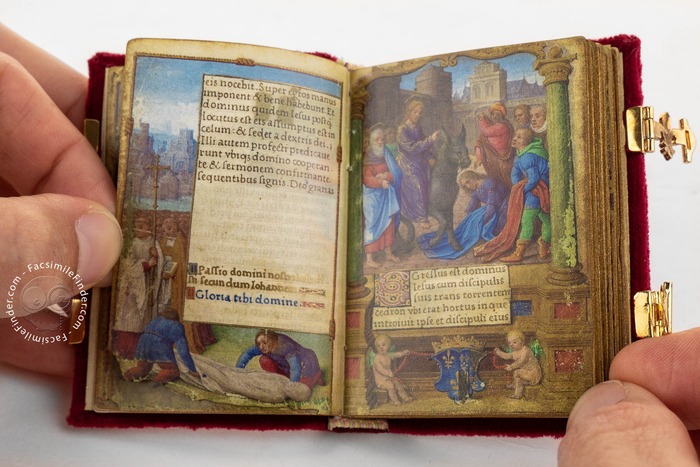 eis nocebit. Super egros manus
imponent & bene habebunt. Et
dominus quidem Iesus postq̃
locutus est eis assumptus est in
celum: & sedet a dextris dei. i
Illi autem profecti predicaue
runt vbiq; domino cooperan
te & sermonem confirmante
sequentibus signis. Deo gratias
Passio domini nostri
secundum Iohannem
Gloria tibi domine.
Gressus est dominus
Iesus cum discipulis
suis trans torrentem
cedron vbi erat hortus in que
introiuit ipse et discipuli eius
FacsimileFinder.com
FacsimileFinder.com